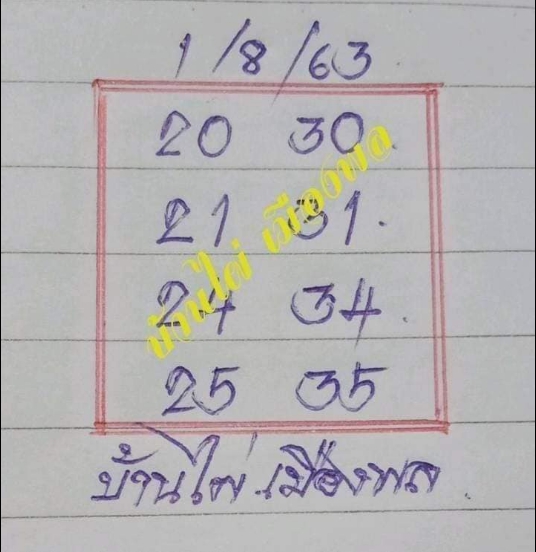 1/8/63
20 30
21 31
24 34
25 35
บ้านไผ่ เมืองพล
บ้านไผ่ เมืองพล